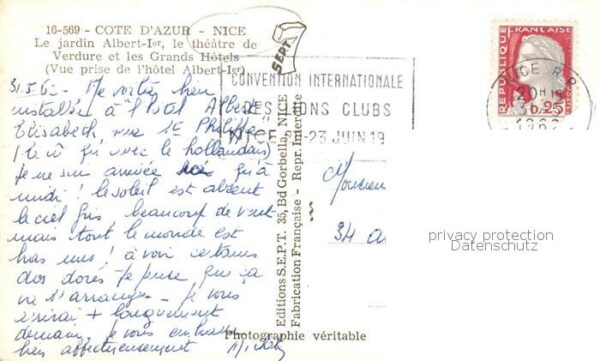 16-569 - COTE D'AZUR - NICE
Le jardin Albert-Ier, le théâtre de
Verdure et les Grands Hôtels
(Vue prise de l'hôtel Albert-Ier)
31.5.6 Me voilà bien
installée à l'Hôtel Albert
Elisabeth rue St Philippe
(là où qu'avec le hollandais)
Je ne suis arrivée qu'à
midi! le soleil est absent
le ciel gris beaucoup de vent
mais tout le monde est
bras nus! à voir certains
dos dorés je pense que ça
va s'arranger - je vous
écrirai + longuement
demain, je vous embrasse
bien affectueusement
SEPT
CONVENTION INTERNATIONALE
DES LIONS CLUBS
NICE 20-23 JUIN 19
NICE R.P.
20H15
31-5
1962
REPUBLIQUE FRANÇAISE
0,25
POSTES
Editions S.E.P.T. 35, Bd Gorbella, NICE
Fabrication Française - Repr. Interdite
Monsieur
34
privacy protection
Datenschutz
Photographie véritable